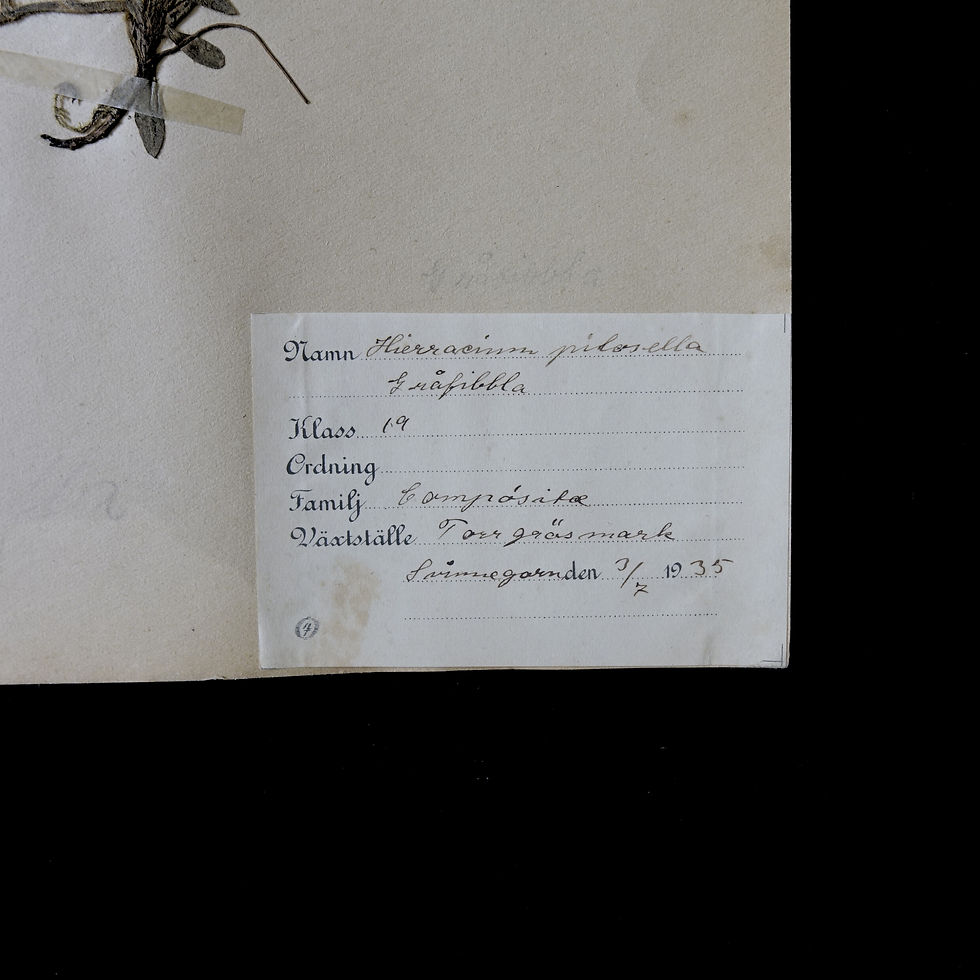 Gråfibbla
Namn Hierracium pilosella
Gråfibbla
Klass 19
Ordning
Familj Compósitæ
Växtställe Torr gräsmark
Svinnegarn den 3/7 1935
4